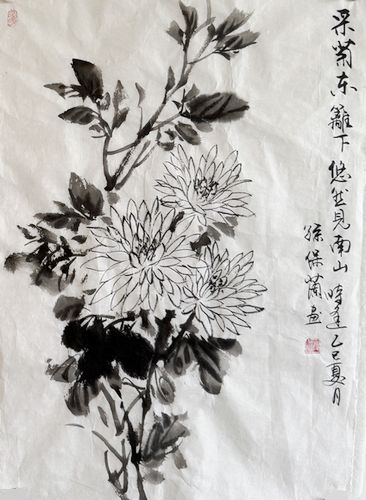 采菊东籬下悠然见南山時逢乙巳夏月
孫保蘭画